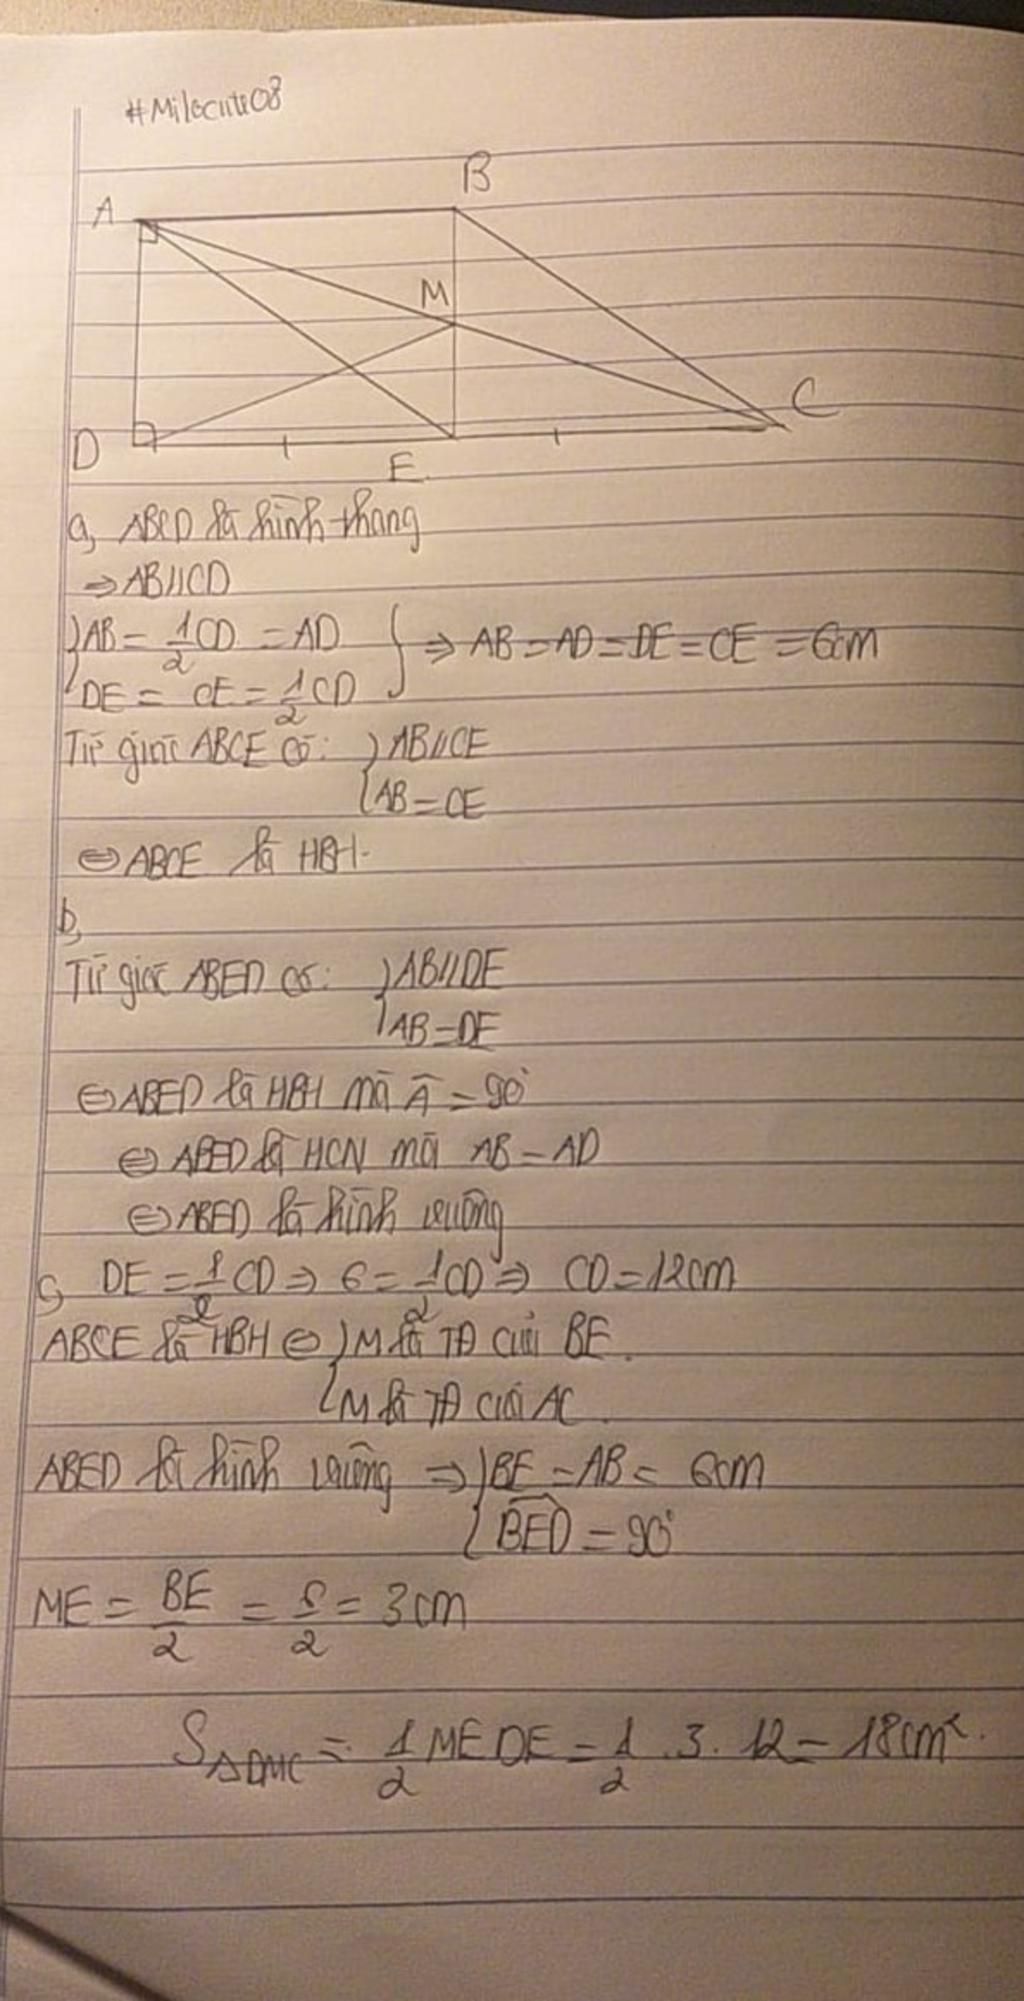 #Milocute08
B
A
M
C
D
E
a, ABCD là hình thang
⇒ AB//CD
AB = 1/2 CD = AD
DE = CE = 1/2 CD
} ⇒ AB = AD = DE = CE = 6cm
Tứ giác ABCE có: { AB//CE
AB = CE
⇔ ABCE là HBH.
b,
Tứ giác ABED có: { AB//DE
AB = DE
⇔ ABED là HBH mà Â = 90°
⇔ ABED là HCN mà AB = AD
⇔ ABED là hình vuông
c, DE = 1/2 CD ⇒ 6 = 1/2 CD ⇒ CD = 12cm
ABCE là HBH ⇔ { M là TĐ của BE.
M là TĐ của AC.
ABED là hình vuông ⇒ { BE = AB = 6cm
BED = 90°
ME = BE/2 = 6/2 = 3cm
S∆DMC = 1/2 ME DE = 1/2 . 3 . 12 = 18cm².